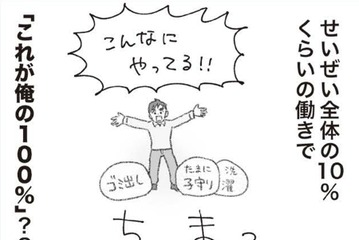 せいぜい全体の10%
くらいの働きで
こんなに
やってる!!
ゴミ出し
たまに
子守り
洗濯
「これが俺の100%」?